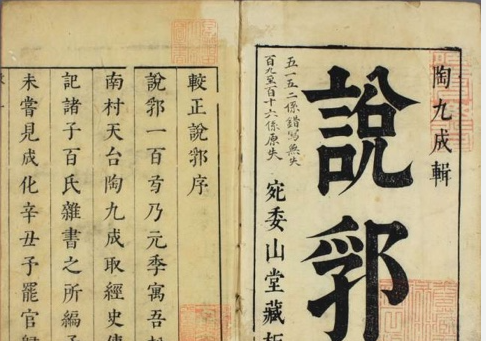 陶九成輯
說郛
五一五二係錯寫無失
百九至百十六係原失
宛委山堂藏板
較正說郛序
說郛一百乃元季寓吾
南村天台陶九成取經史傳
記諸子百氏雜書之所編
未嘗見成化辛丑予罷官歸